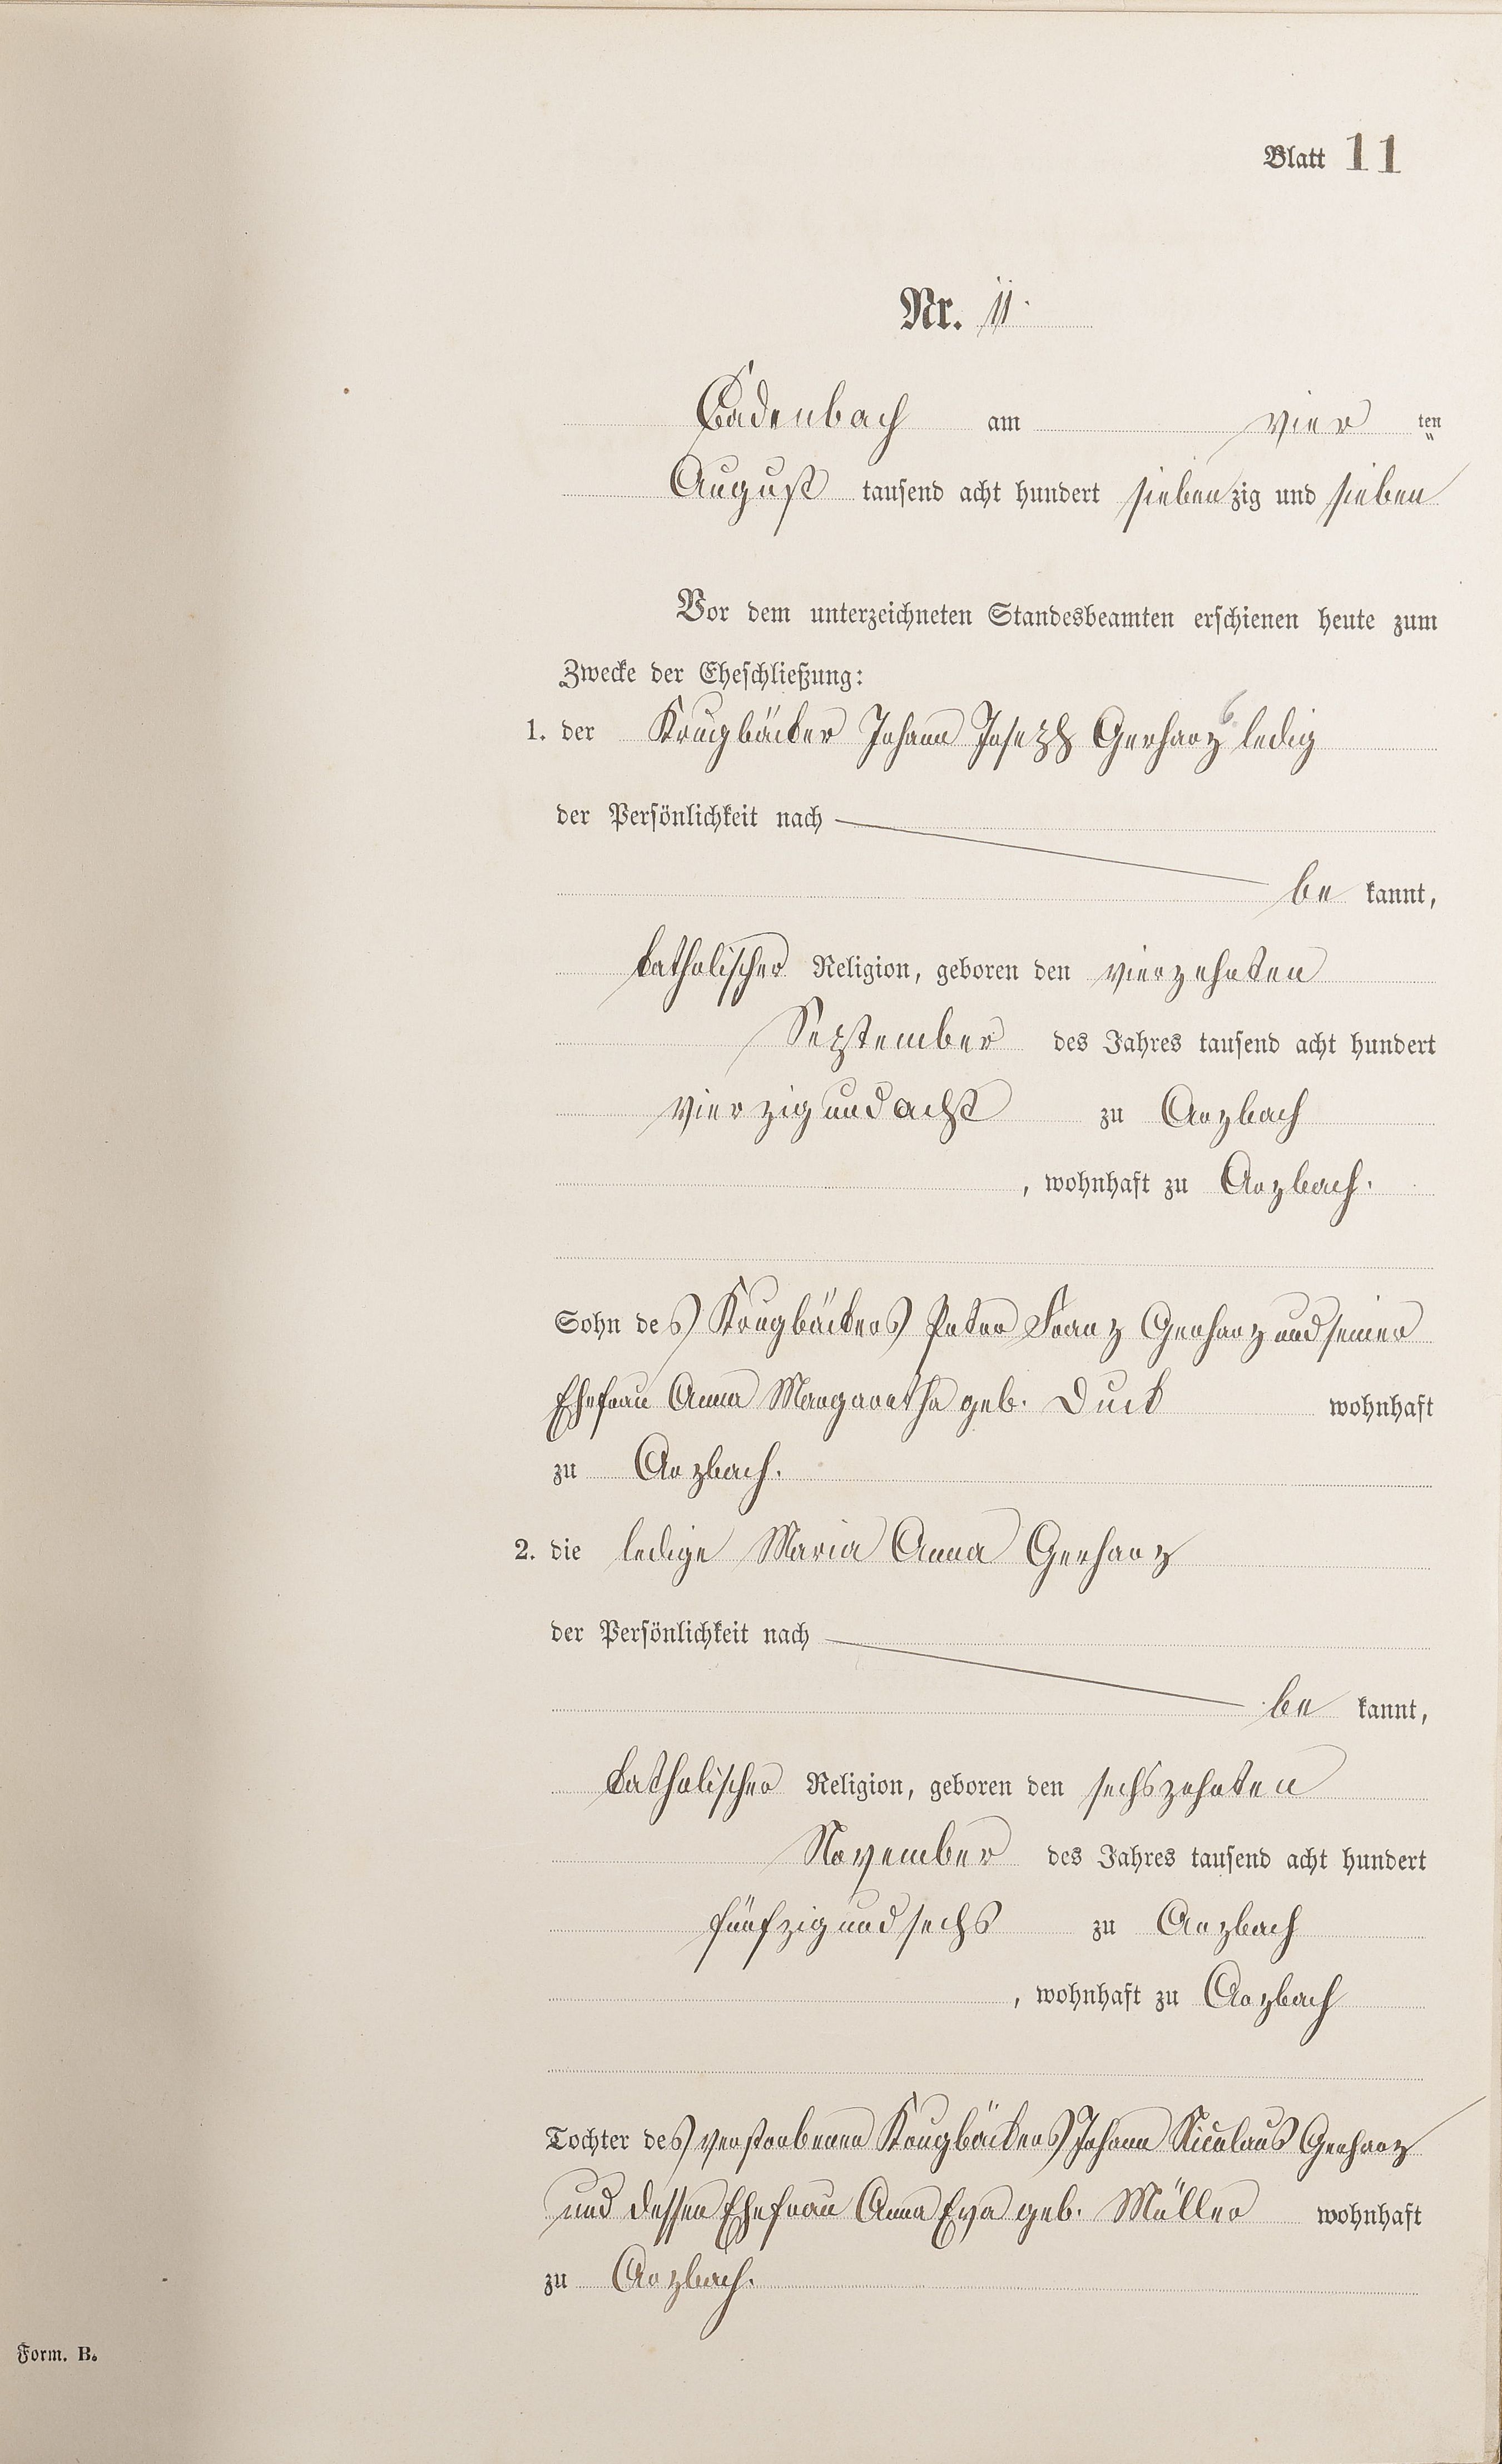 Blatt 11
Nr. 11.
Cadenbach am vier ten
August tausend acht hundert siebenzig und sieben
Vor dem unterzeichneten Standesbeamten erschienen heute zum
Zwecke der Eheschließung:
1. der Krugbäcker Johann Joseph Gerharz 6 ledig
der Persönlichkeit nach
be kannt,
katholischer Religion, geboren den vierzehnten
September des Jahres tausend acht hundert
vierzig und acht zu Arzbach
, wohnhaft zu Arzbach.
Sohn des Krugbäckers Peter Franz Gerharz und seiner
Ehefrau Anna Margaretha geb. Duck wohnhaft
zu Arzbach.
2. die ledige Maria Anna Gerharz
der Persönlichkeit nach
be kannt,
katholischer Religion, geboren den sechszehnten
November des Jahres tausend acht hundert
fünfzig und sechs zu Arzbach
, wohnhaft zu Arzbach
Tochter des verstorbenen Krugbäckers Johann Nicolaus Gerharz
und dessen Ehefrau Anna Eva geb. Müller wohnhaft
zu Arzbach.
Form. B.